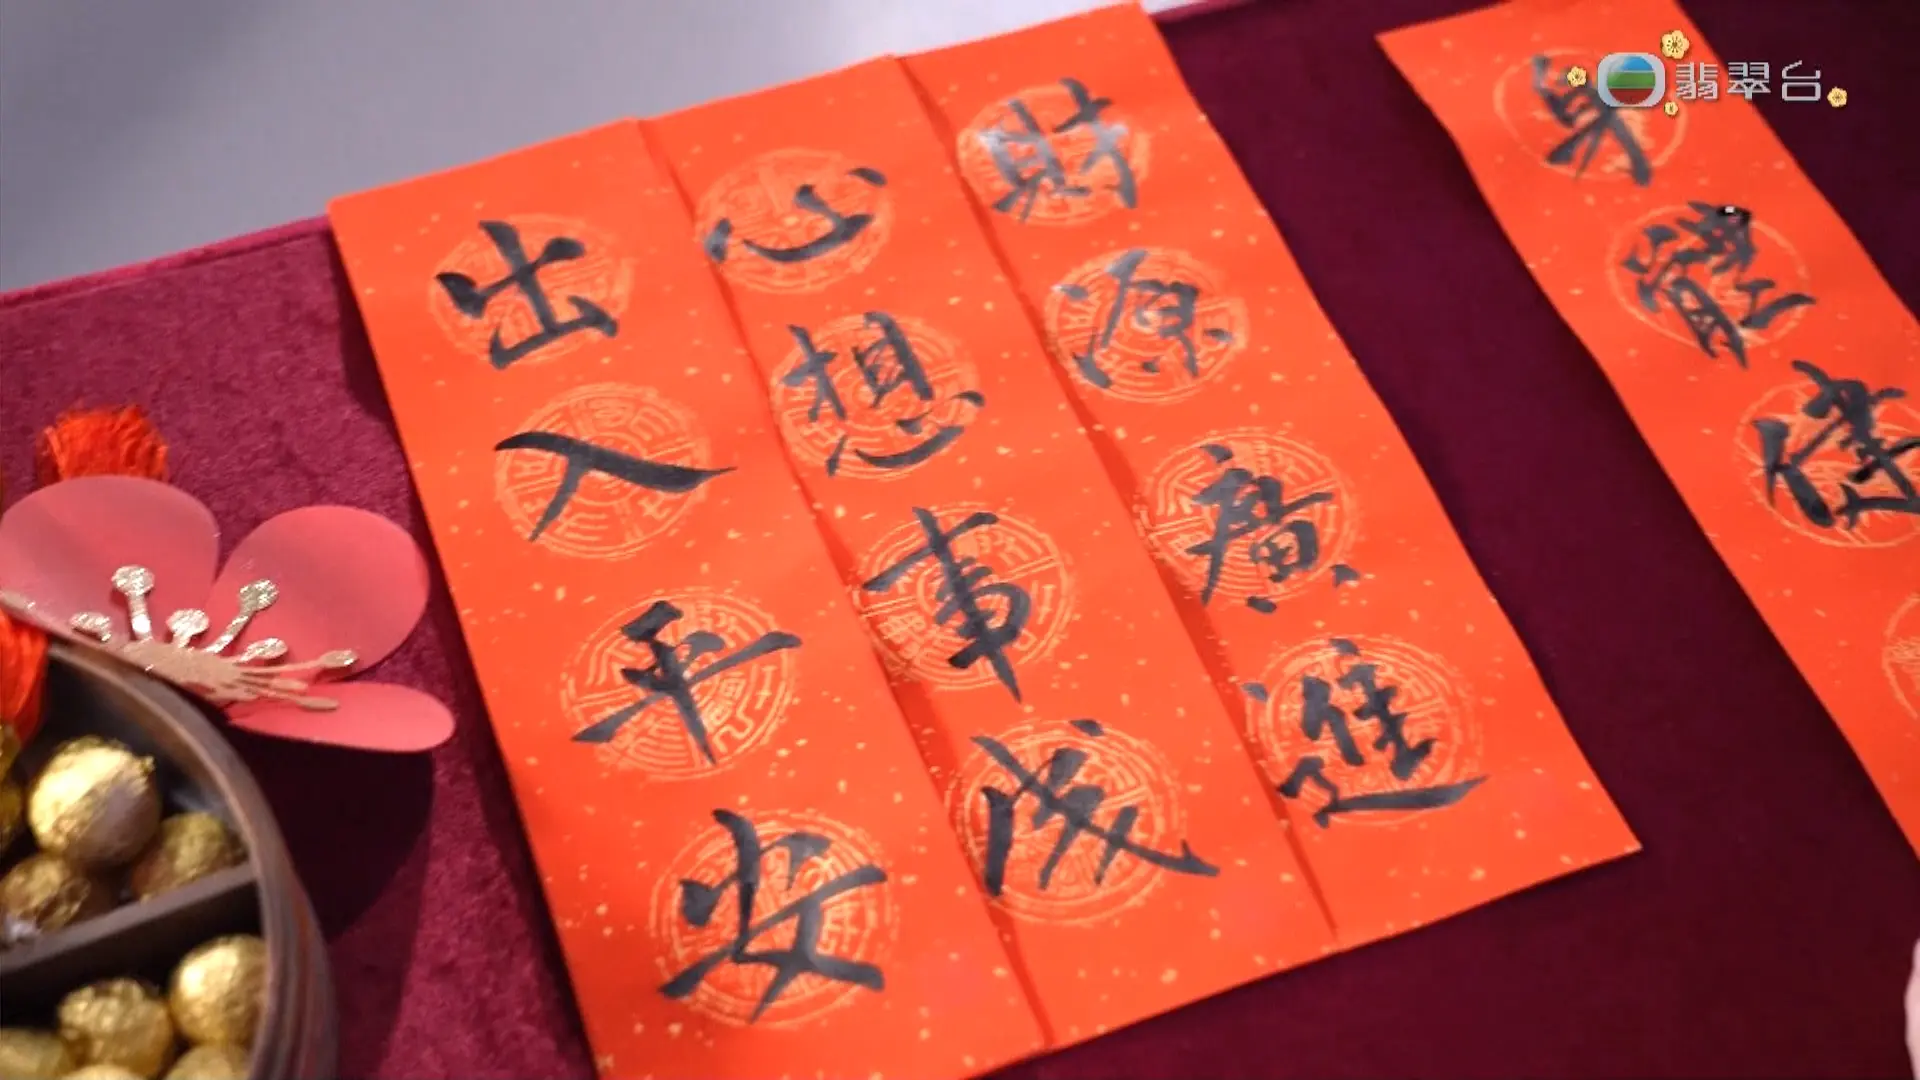 翡翠台
身體健
財源廣進
心想事成
出入平安